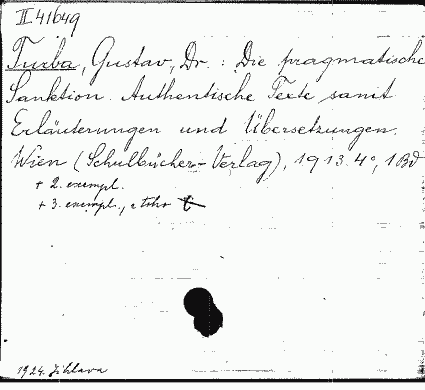 II 41649
Turba, Gustav, Dr. : Die pragmatische
Sanktion. Authentische Texte samt
Erläuterungen und Übersetzungen.
Wien (Schulbücher-Verlag), 1913. 4°, 1 Bd
+ 2. exempl.
+ 3. exempl., z toho
1924. Jihlava